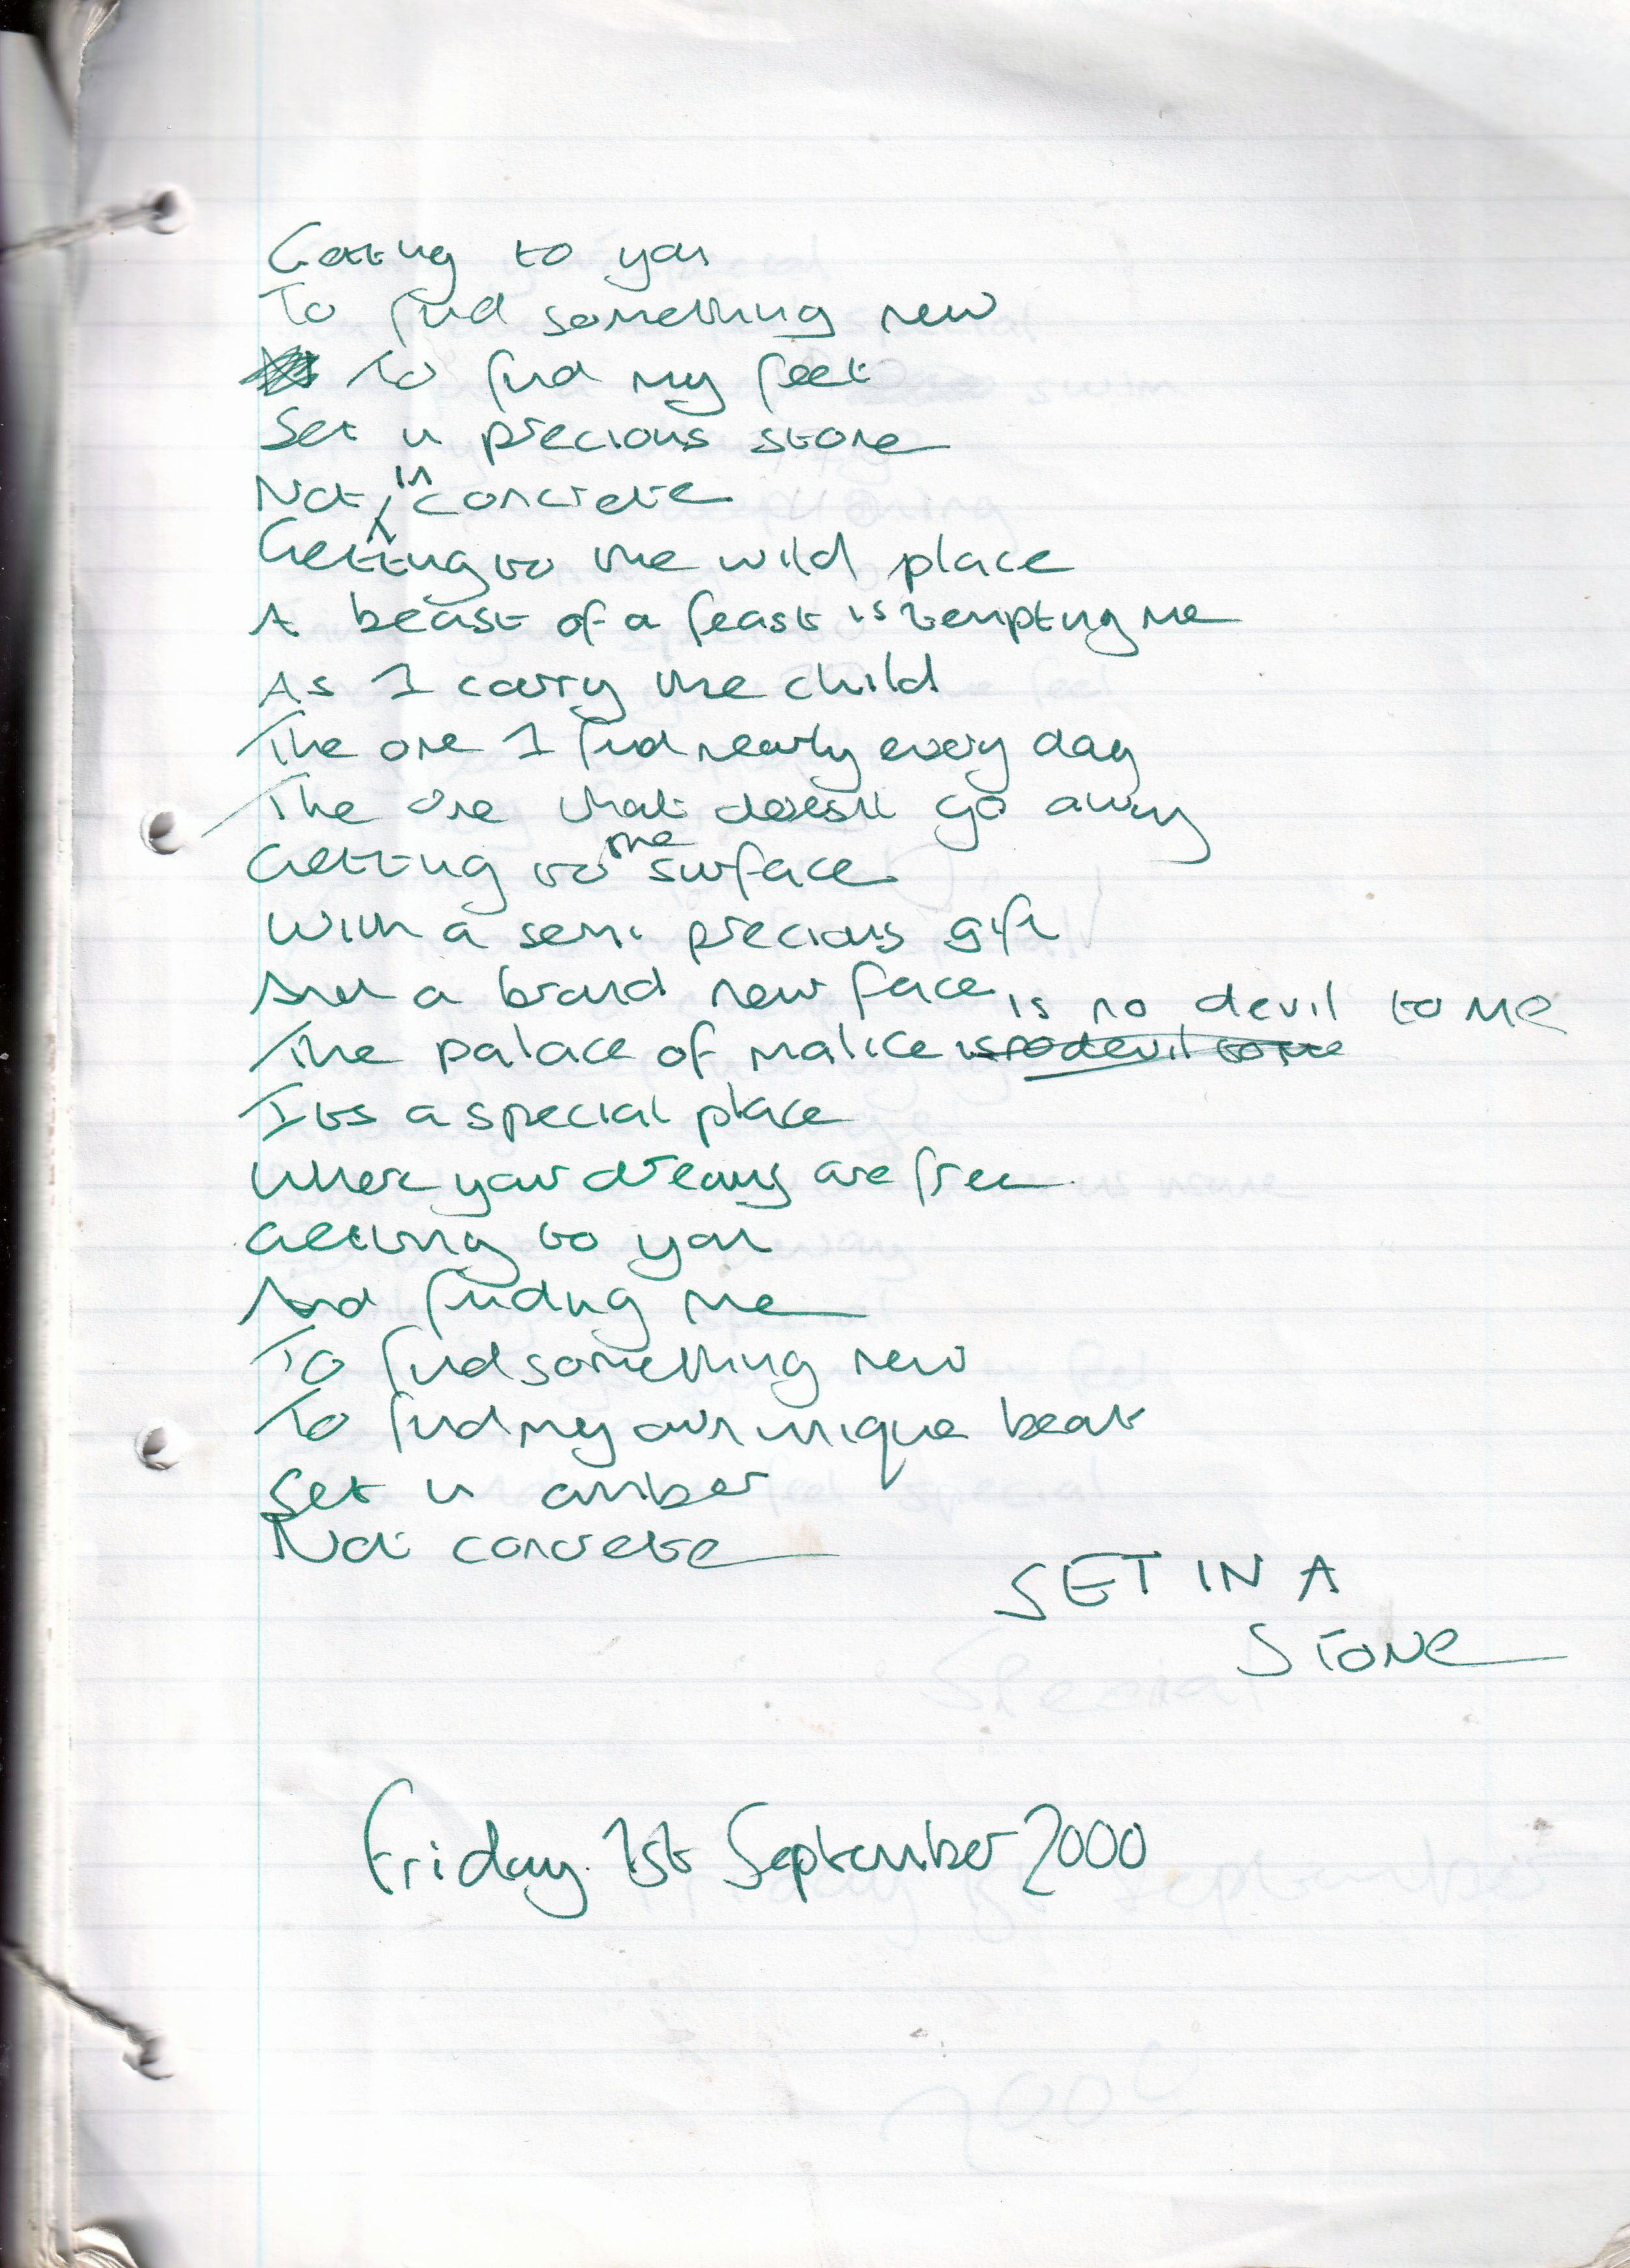 Getting to you
To find something new
To find my feet
Set in precious stone
Not in concrete
Getting to the wild place
A beast of a feast is tempting me
As I carry the child
The one I find nearly every day
The one that doesn't go away
Getting to the surface
With a semi precious gift
And a brand new face
is no devil to me
The palace of malice is no devil to me
Its a special place
Where your dreams are free
Getting to you
And finding me
To find something new
To find my own unique beat
Set in amber
Not concrete
SET IN A
STONE
Friday 1st September 2000